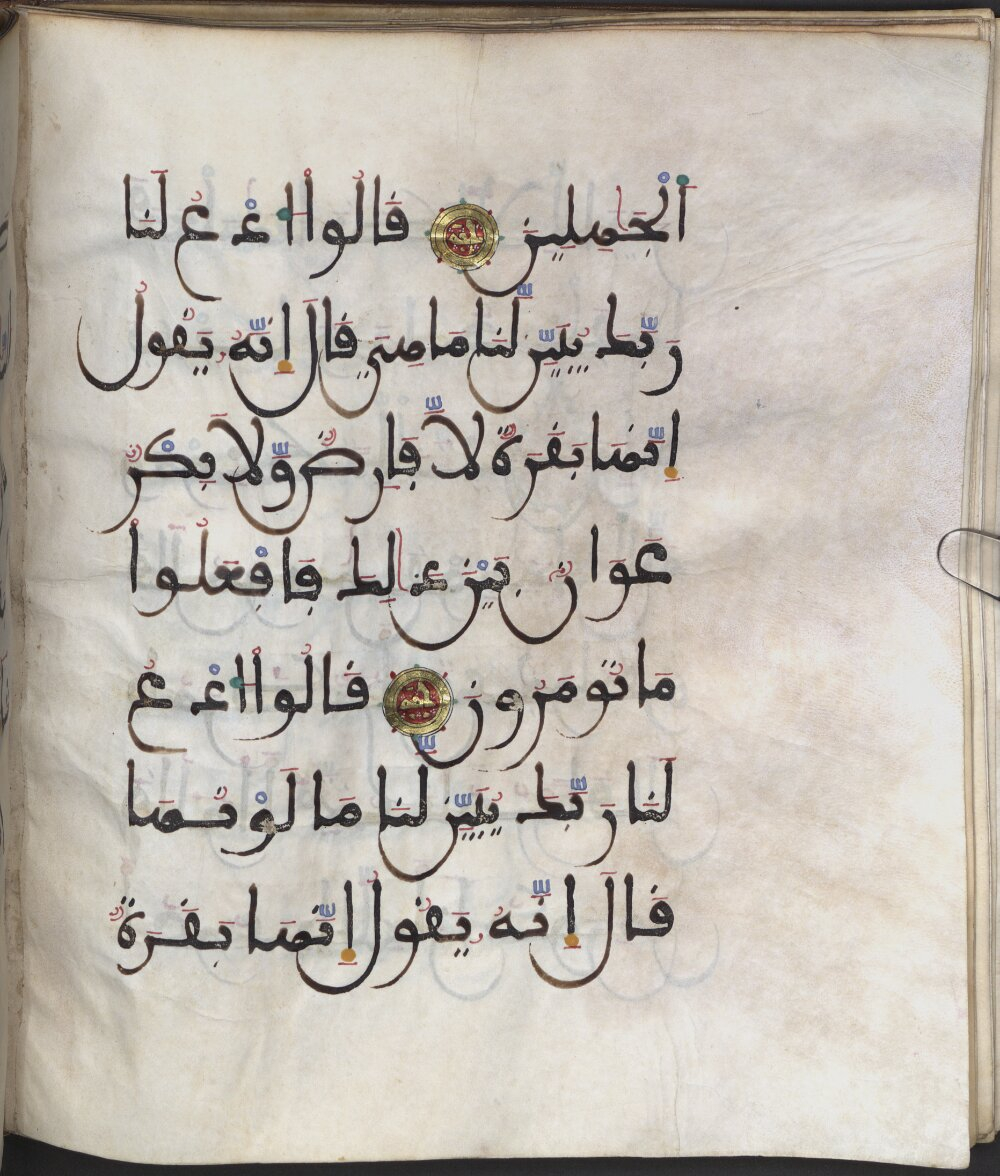 اَ۬لْجَٰهِلِينَ قَالُواْ اُ۟دْعُ لَنَا
رَبَّكَ يُبَيِّن لَّنَا مَا هِيَ قَالَ إِنَّهُۥ يَقُولُ
إِنَّهَا بَقَرَةٞ لَّا فَارِضٞ وَّلَا بِكْرٌ
عَوَانُۢ بَيْنَ ذَٰلِكَ فَافْعَلُواْ
مَا تُومَرُونَ قَالُواْ اُ۟دْعُ
لَنَا رَبَّكَ يُبَيِّن لَّنَا مَا لَوْنُهَا
قَالَ إِنَّهُۥ يَقُولُ إِنَّهَا بَقَرَةٞ